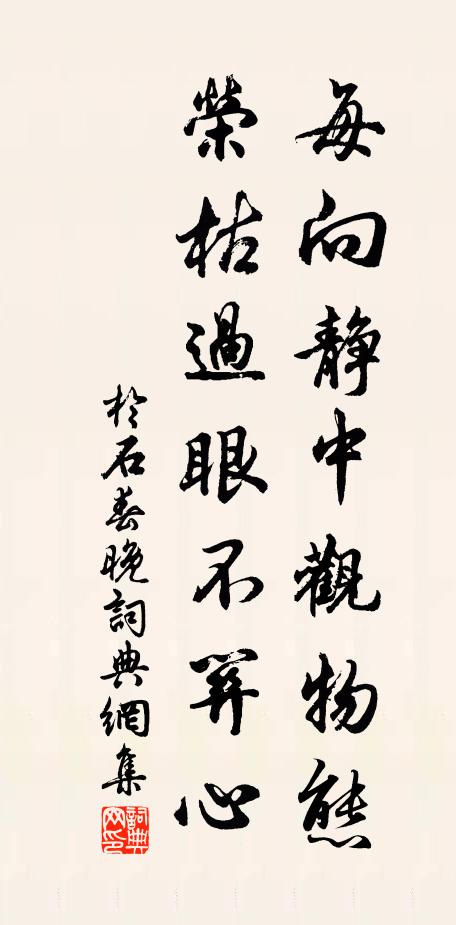 每向静中觀物態
榮枯過眼不關心
於石春晚詞典網集
詞典网印